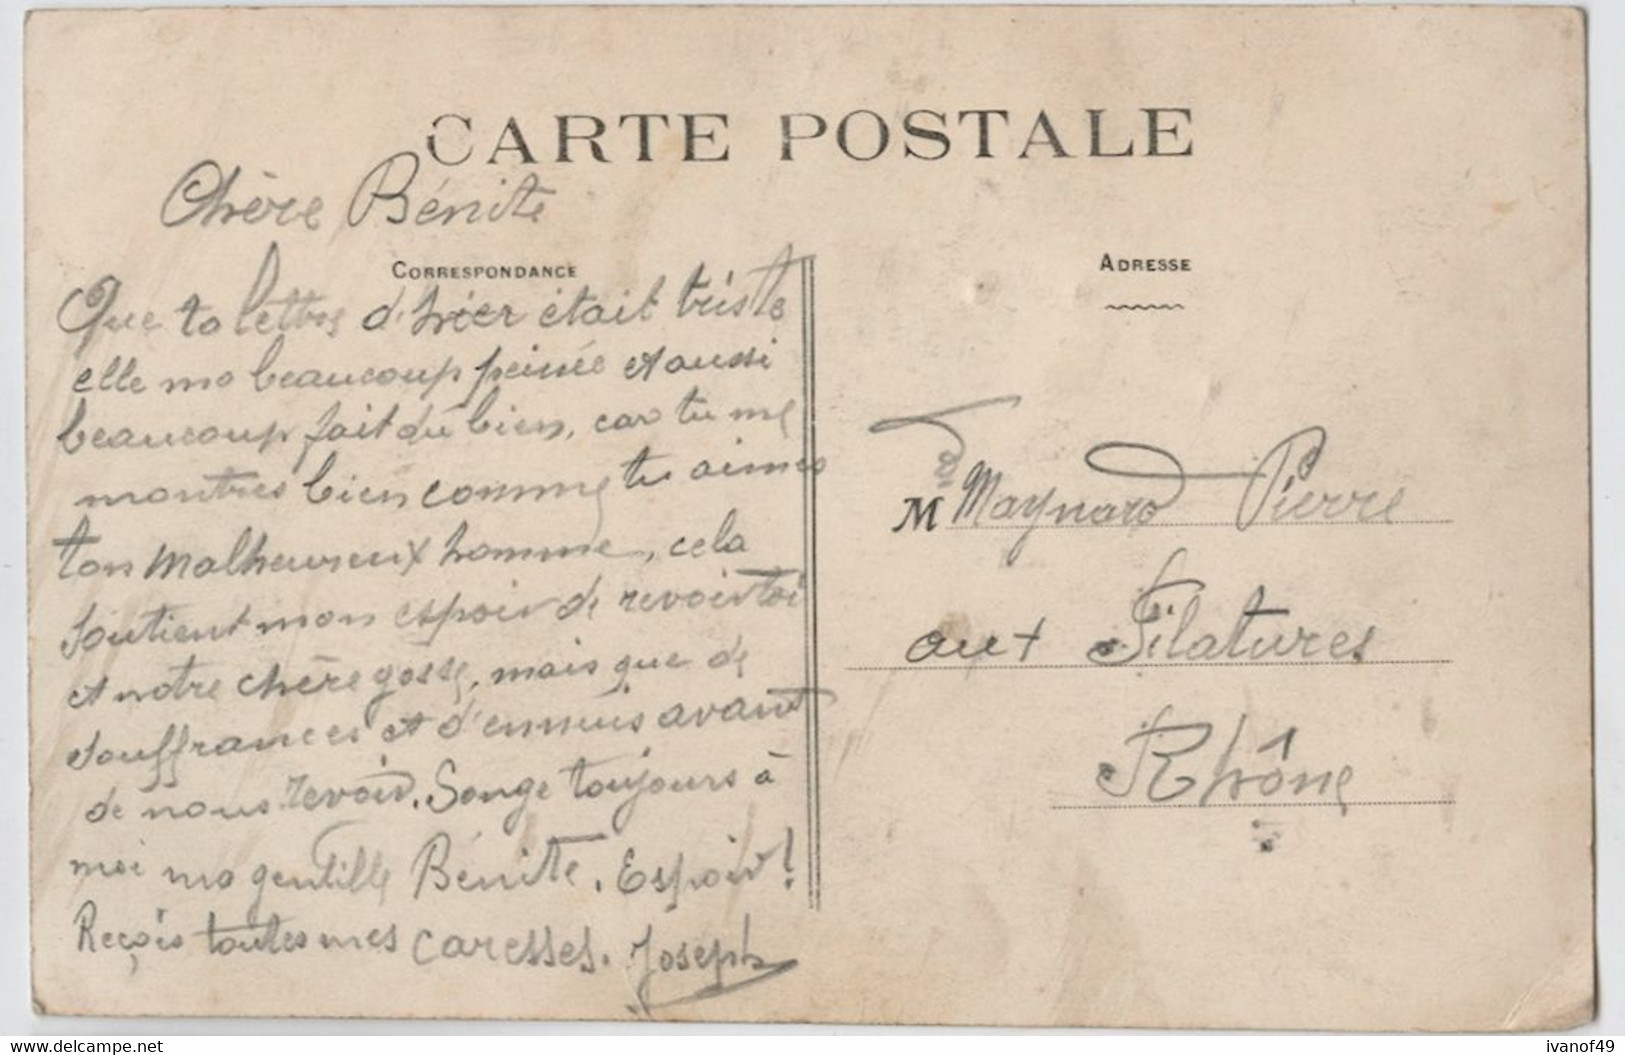 CARTE POSTALE
Chère Bénite
CORRESPONDANCE
Que ta lettre d'hier était triste
elle ma beaucoup peinée et aussi
beaucoup fait du bien, car tu me
montres bien comme tu aimes
ton malheureux homme, cela
soutient mon espoir de revoir toi
et notre chère gosse, mais que de
souffrances et d'ennuis avant
de nous revoir. Songe toujours à
moi ma gentille Bénite. Espoir!
Reçois toutes mes caresses. Joseph
ADRESSE
M Maynard Pierre
aux Filatures
Rhône
www.delcampe.net
ivanof49